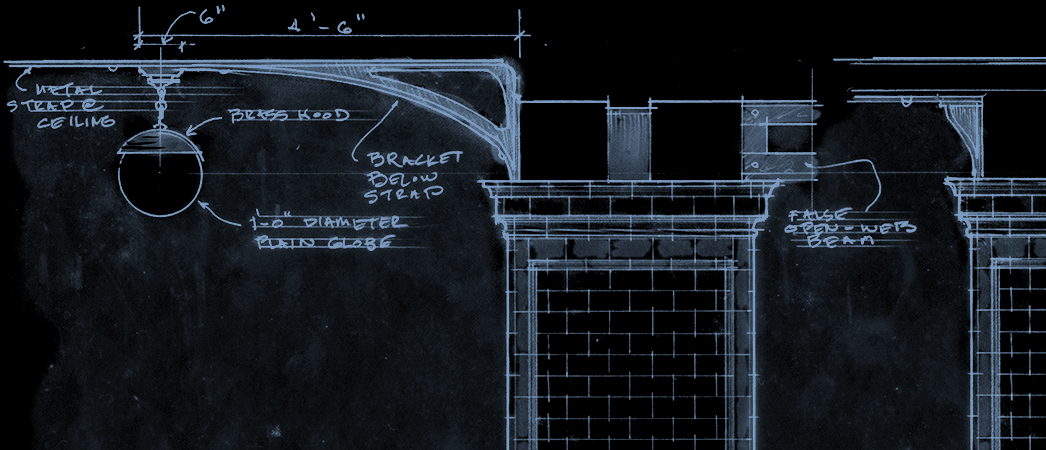 6"
4'-6"
METAL
STRAP @
CEILING
BRASS HOOD
BRACKET
BELOW
STRAP
1'-0" DIAMETER
PLAIN GLOBE
FALSE
OPEN-WEB
BEAM